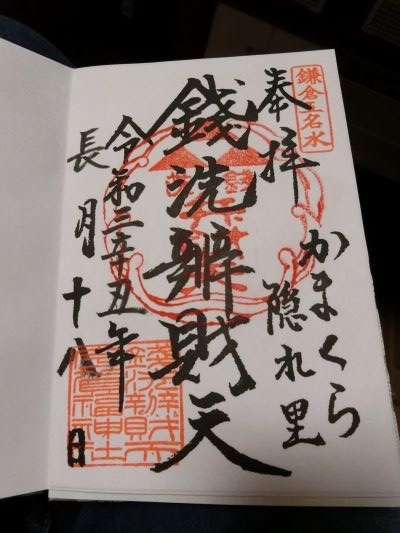 鎌倉五名水
奉拝
かまくら
隠れ里
銭洗辧財天
令和三辛丑年
長月十八日